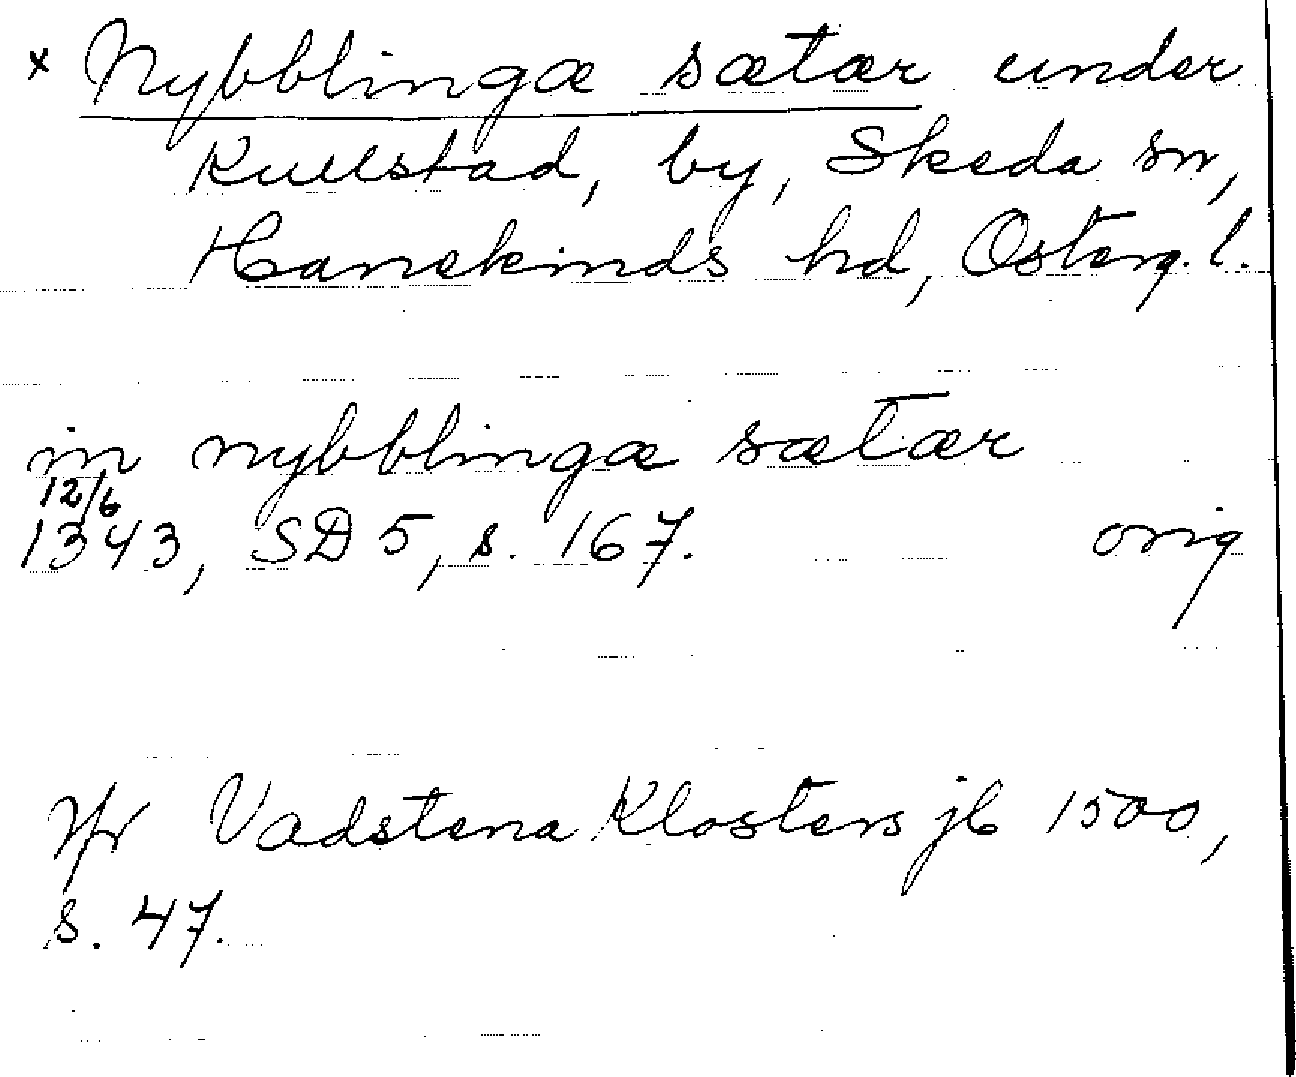 x Nybblingæ sætær under
Kullstad, by, Skeda sn,
Hanekinds hd, Österg. l.
in nybblingæ sætær
12/6
1343, SD 5, s. 167. orig
Jfr Vadstena Klosters jb 1500,
s. 47.